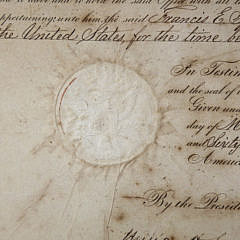 to have and to hold the said Office with all th
appertaining, unto him, the said Francis E.
the United States, for the time be
In Testi
and the seal of t
Given under
day of M
and Sixty
America
By the Preside